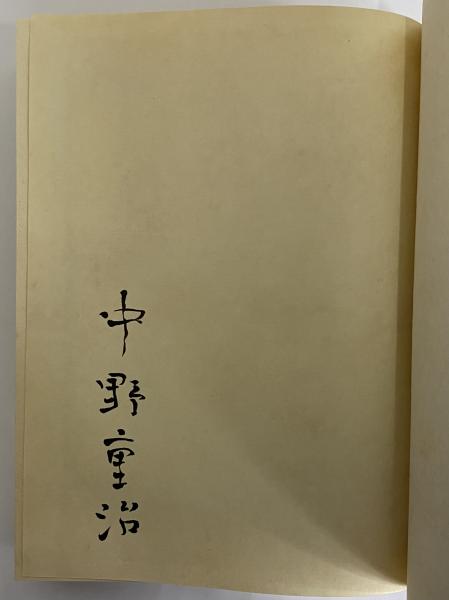 中野重治